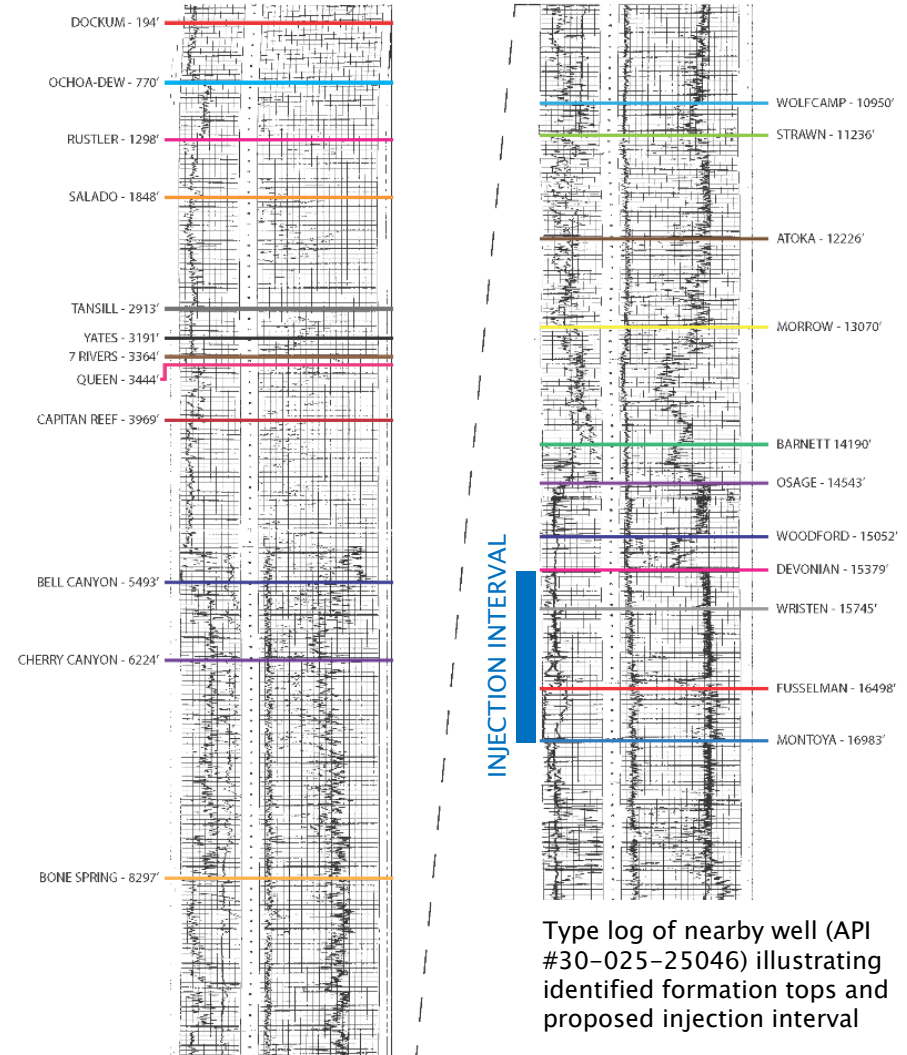 DOCKUM - 194'
OCHOA-DEW - 770'
RUSTLER - 1298'
SALADO - 1848'
TANSILL - 2913'
YATES - 3191'
7 RIVERS - 3364'
QUEEN - 3444'
CAPITAN REEF - 3969'
BELL CANYON - 5493'
CHERRY CANYON - 6224'
BONE SPRING - 8297'
WOLFCAMP - 10950'
STRAWN - 11236'
ATOKA - 12226'
MORROW - 13070'
BARNETT 14190'
OSAGE - 14543'
WOODFORD - 15052'
DEVONIAN - 15379'
WRISTEN - 15745'
FUSSELMAN - 16498'
MONTOYA - 16983'
INJECTION INTERVAL
Type log of nearby well (API
#30-025-25046) illustrating
identified formation tops and
proposed injection interval